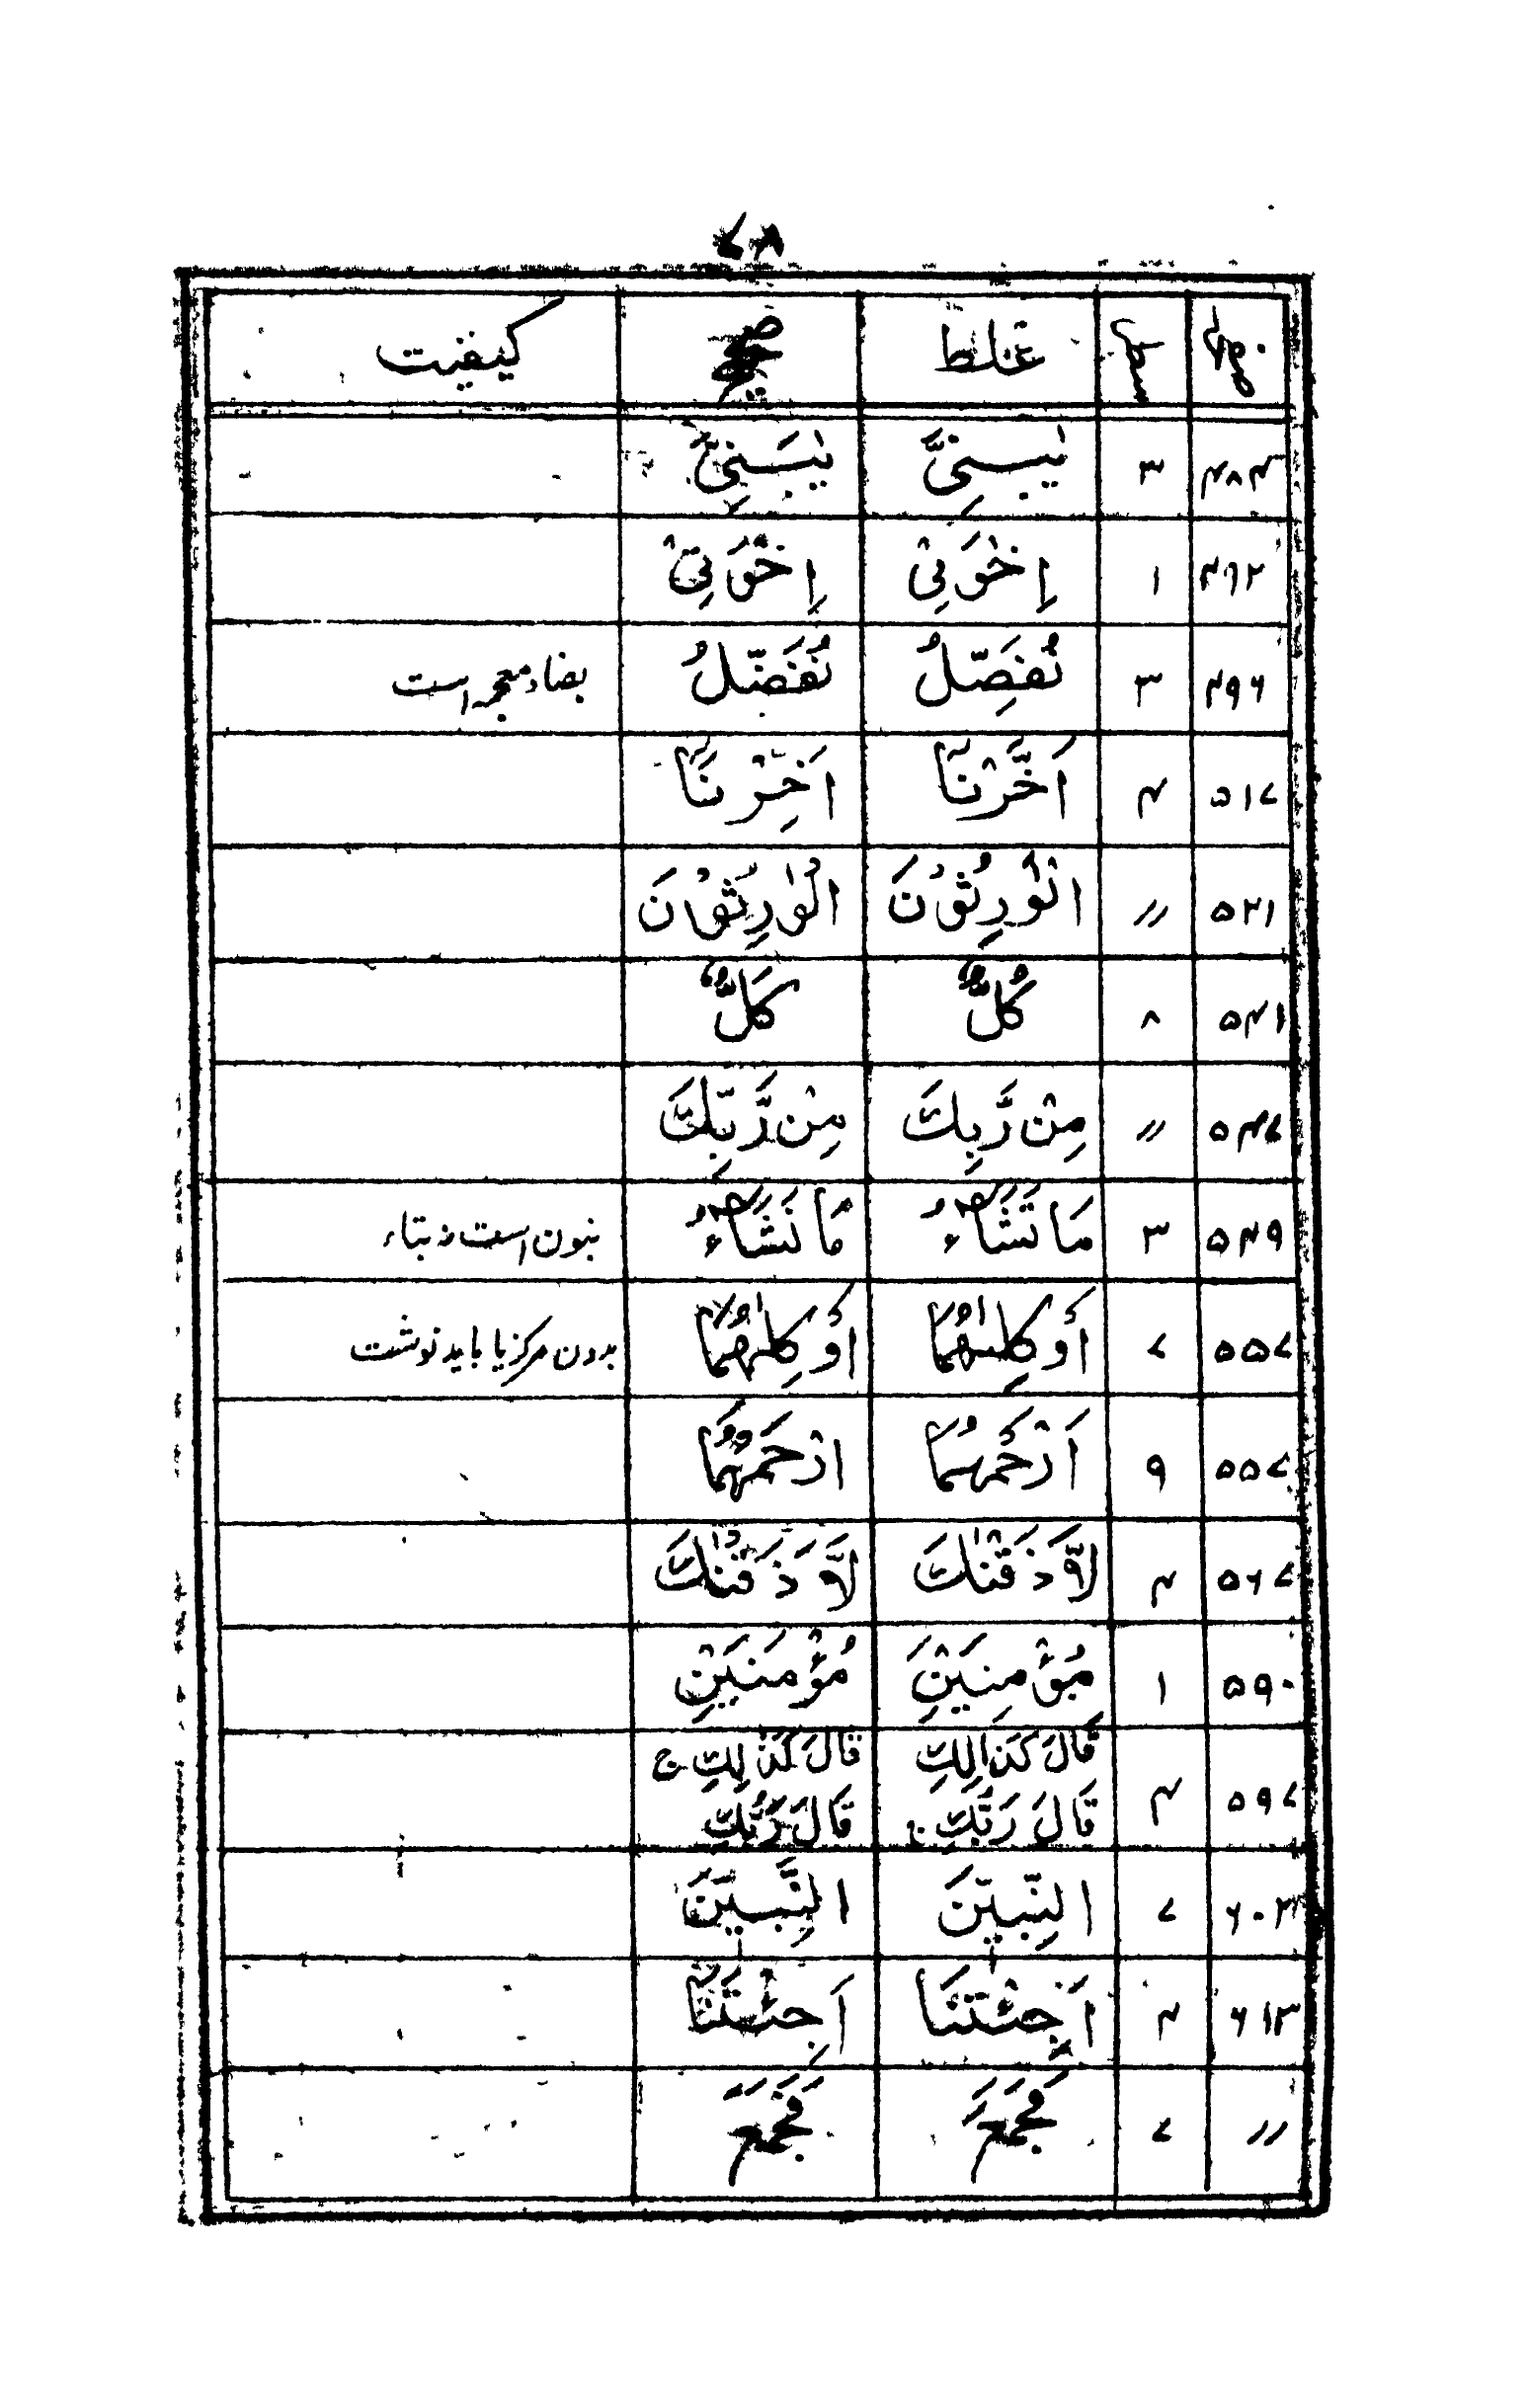 ۷۸
صفحه سطر غلط صحیح کیفیت
۴۸۴ ۳ یٰبَسِنِیَّ یٰبَسَنِیَّ
۴۶۲ ۱ اِخْوَتِیْ اِخْوَتِیْ
۴۹۶ ۳ نُفَصِّلُ نُفَضِّلُ بضاء معجمه است
۵۱۷ ۴ اَخَّرْتَنَا اَخِّرْنَا
۵۲۱ 〃 الْوٰرِثُوْنَ الْوٰرِثُوْنَ
۵۴۱ ۸ كُلٌّ كَلٌّ
۵۴۷ 〃 مِنْ رَّبِكَ مِنْ رَّبِّكَ
۵۴۹ ۳ مَا تَشَآءُ مَا نَشَآءُ بنون است نه بتاء
۵۵۷ ۷ أَوْ كِلٰىهُمَا اَوْ كِلٰهُمَا بدون مرکز یا باید نوشت
۵۵۷ ۹ اَرْحَمْهُمَا ارْحَمْهُمَا
۵۶۷ ۴ لَّاَذَقْنٰكَ لَّاَذَقْنٰكَ
۵۹۰ ۱ مُؤْمِنِیْنَ مُؤْمِنَیْنِ
۵۹۷ ۴ قَالَ كَذَالِكِ قَالَ كَذٰلِكِ ج
قَالَ رَبُّكِ قَالَ رَبُّكَ
۶۰۲ ۷ النِّبیّٖنَ النَّبِیّٖنَ
۶۱۳ ۴ اَجِئْتَنَا اَجِئْتَنَا
〃 ۷ فَجَمَعَ فَجَمَعَ